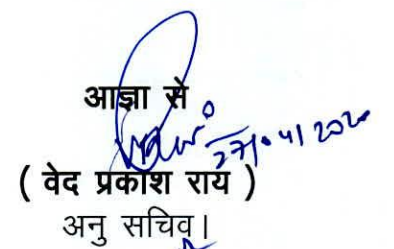 आज्ञा से
27/04/2020
( वेद प्रकाश राय )
अनु सचिव।